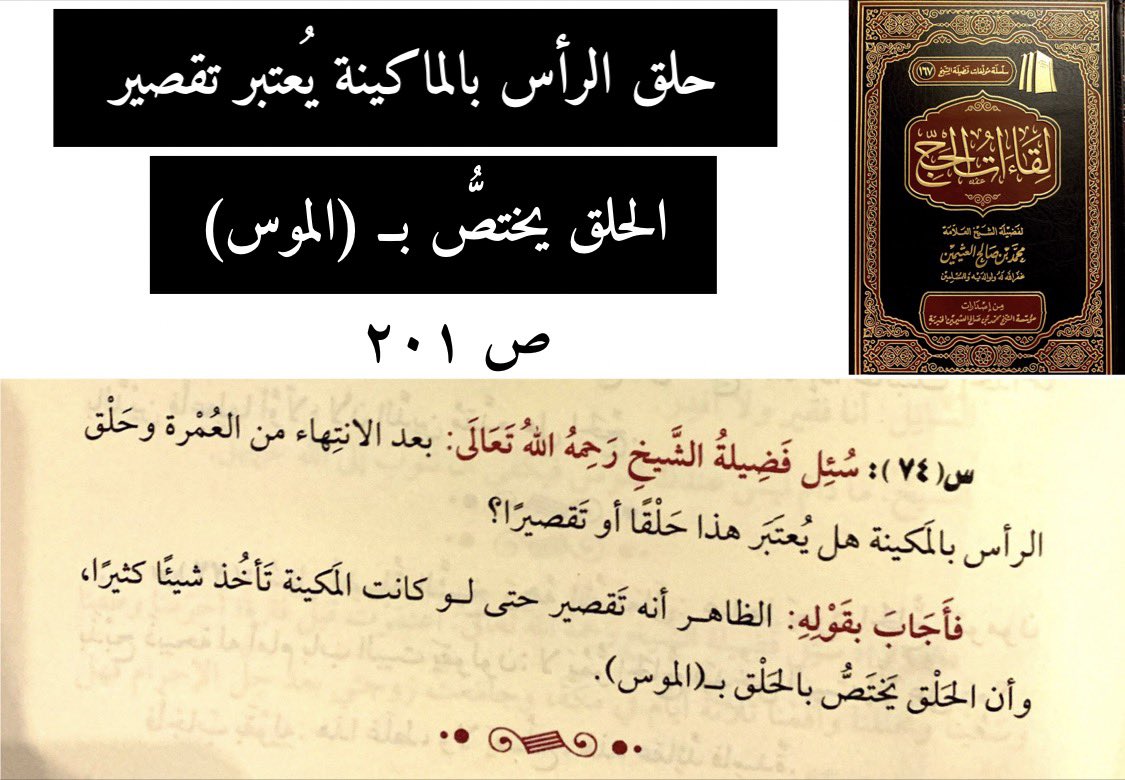 حلق الرأس بالماكينة يُعتبر تقصير
الحلق يختصُّ بـ (الموس)
ص ٢٠١
سلسلة مؤلفات فضيلة الشيخ (١٦٧)
لِقَاءَاتُ الحَجِّ
لفضيلة الشيخ العلامة
محمد بن صالح العثيمين
غفر الله له ولوالديه وللمسلمين
من إصدارات
مؤسسة الشيخ محمد بن صالح العثيمين الخيرية
س(٧٤): سُئِل فَضِيلةُ الشَّيخِ رَحِمهُ اللهُ تَعَالَى: بعد الانتِهاء من العُمْرة وحَلْق
الرأس بالمَكينة هل يُعتَبَر هذا حَلْقًا أو تَقصيرًا؟
فأَجَابَ بقَوْلِهِ: الظاهـر أنه تَقصير حتى لـو كانت المَكينة تَأخُذ شيئًا كثيرًا،
وأن الحَلْق يَختَصُّ بالحَلْق بـ(الموس).